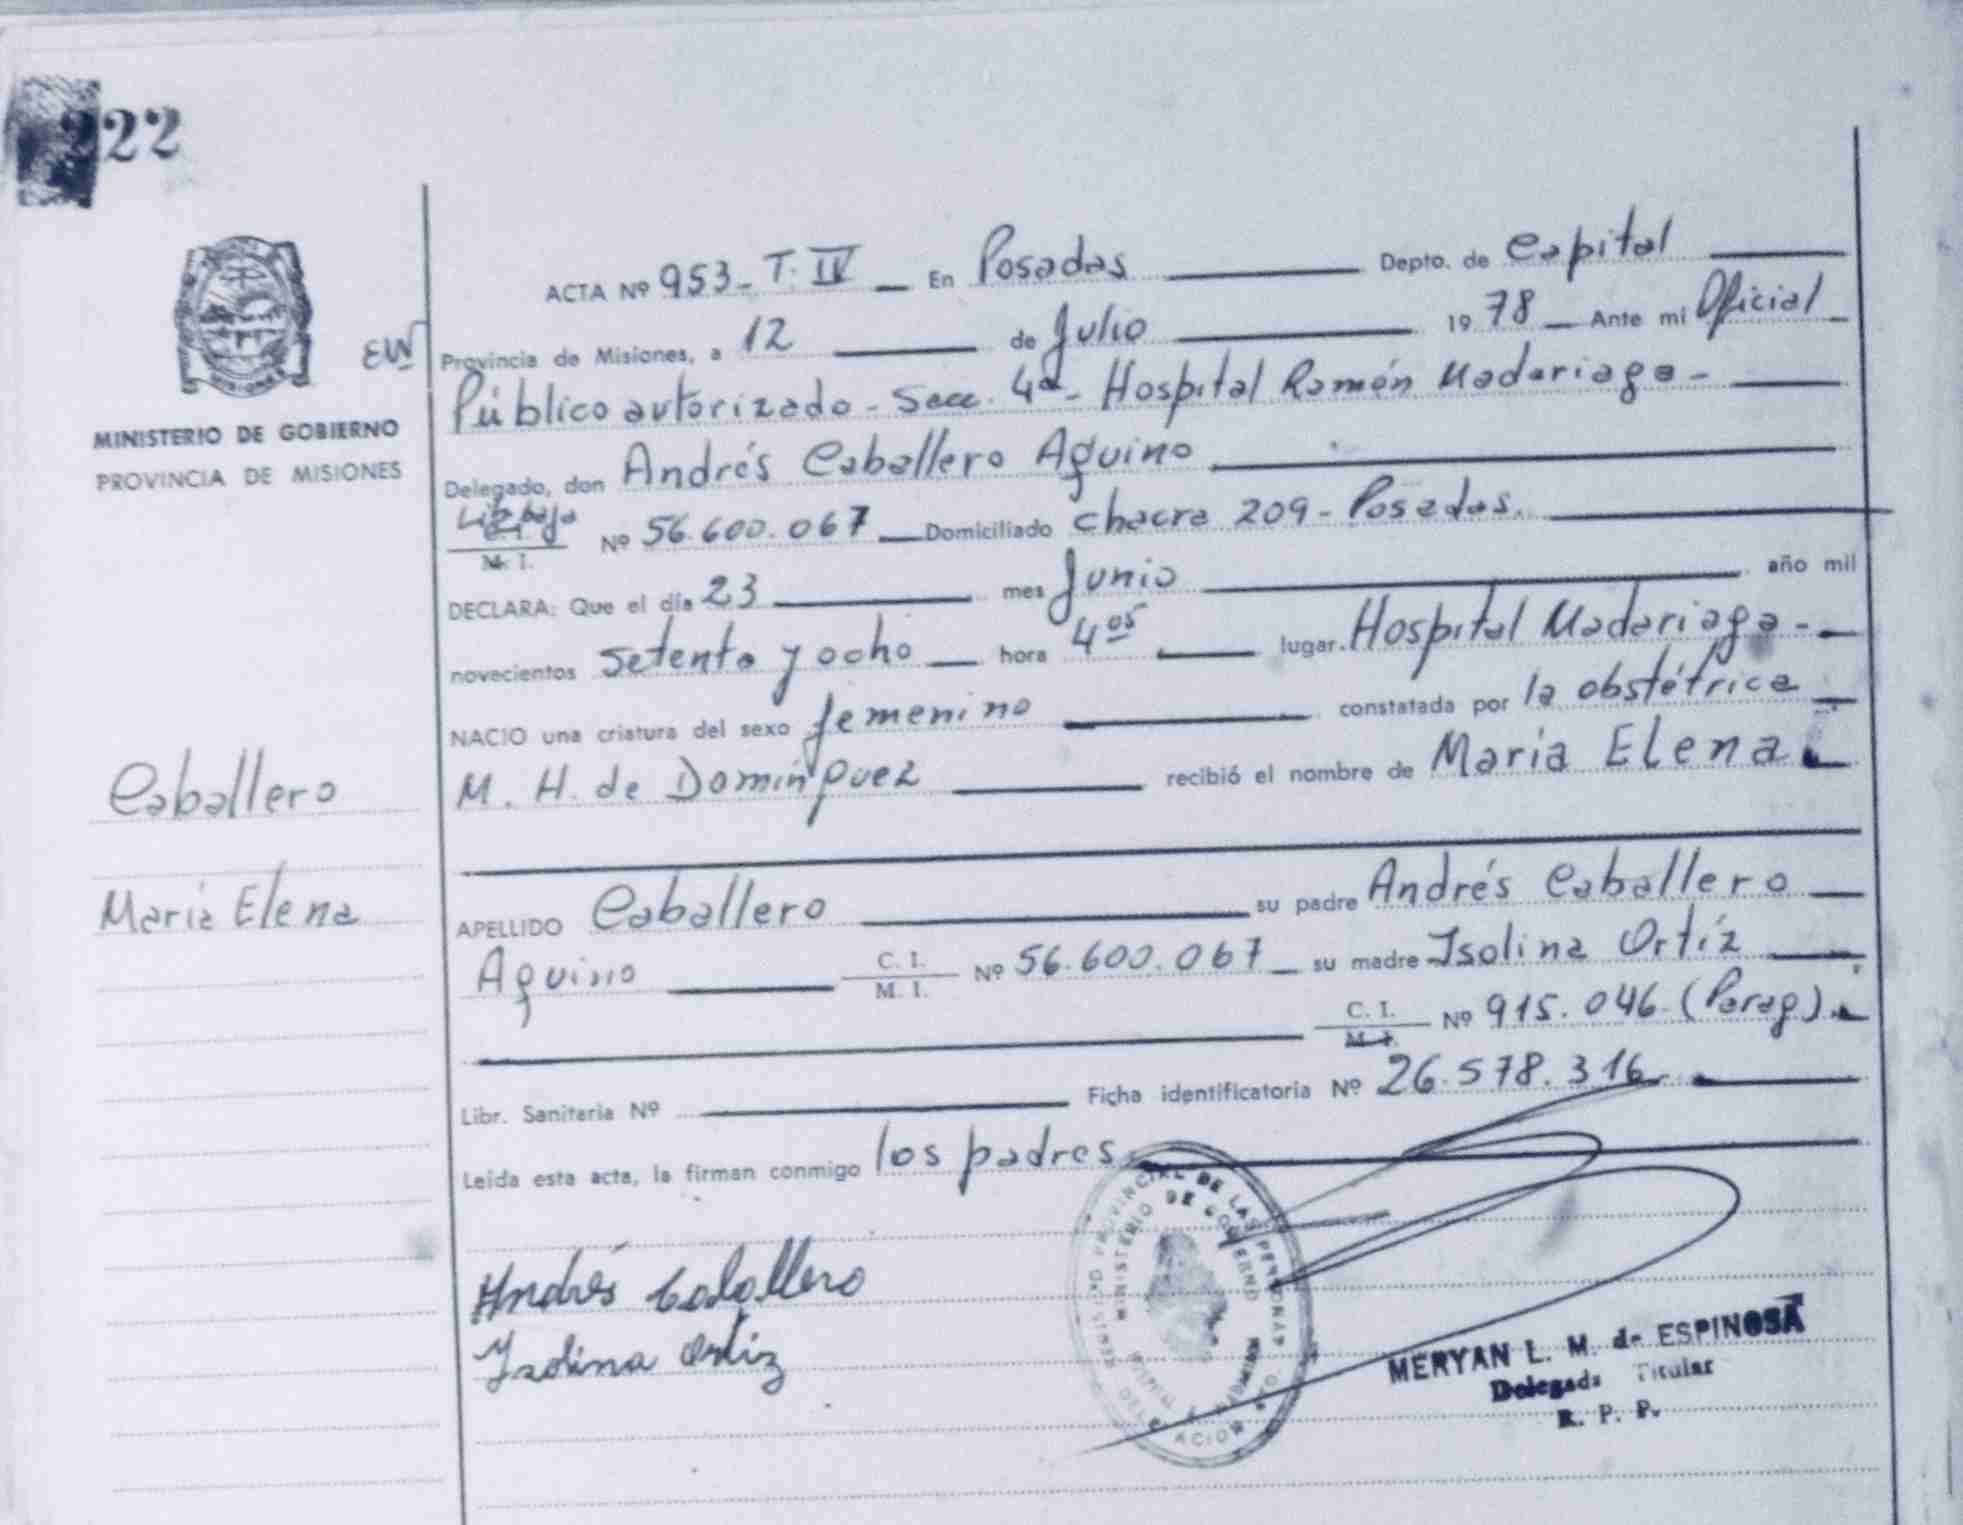 222
ACTA Nº 953 - T. IV - En Posadas Depto. de Capital
Provincia de Misiones, a 12 de Julio 1978 Ante mi Oficial
Público autorizado - Secc. 4ª - Hospital Ramón Madariaga -
MINISTERIO DE GOBIERNO
PROVINCIA DE MISIONES
Delegado, don Andrés Caballero Aquino
M. I. Nº 56.600.067 Domiciliado chacra 209 - Posadas.
DECLARA: Que el día 23 mes Junio año mil
novecientos setenta y ocho hora 4 05 lugar Hospital Madariaga -
NACIO una criatura del sexo femenino constatada por la obstétrica
M. H. de Domínguez recibió el nombre de María Elena
Caballero
María Elena
APELLIDO Caballero su padre Andrés Caballero
Aquino C. I. M. I. Nº 56.600.067 su madre Isolina Ortíz
C. I. M. I. Nº 915.046 (Parag).
Libr. Sanitaria Nº Ficha identificatoria Nº 26.578.316
Leída esta acta, la firman conmigo los padres
Andrés Caballero
Isolina Ortiz
MERYAN L. M. de ESPINOSA
Delegada Titular
R. P. P.